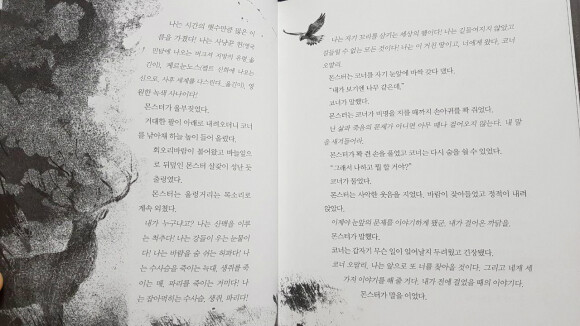 나는 시간의 햇수만큼 많은 이
름을 가졌다! 나는 사냥꾼 헌(영국
민담에 나오는 머크셔 지방의 유령_옮
긴이), 케르눈노스(켈트 신화에 나오는
신으로, 사후 세계를 다스린다_옮긴이), 영
원한 녹색 사나이다!
몬스터가 울부짖었다.
거대한 팔이 아래로 내려오더니 코너
를 낚아채 하늘 높이 들어 올렸다.
회오리바람이 불어왔고 바늘잎으
로 뒤덮인 몬스터 살갗이 성난 듯
출렁였다.
몬스터는 울렁거리는 목소리로
계속 외쳤다.
내가 누구냐고? 나는 산맥을 이루
는 척추다! 나는 강들이 우는 눈물이
다! 나는 바람을 숨 쉬는 허파다! 나
는 수사슴을 죽이는 늑대, 생쥐를 죽
이는 매, 파리를 죽이는 거미다! 나
는 잡아먹히는 수사슴, 생쥐, 파리다!
나는 자기 꼬리를 삼키는 세상의 뱀이다! 나는 길들여지지 않았고
길들일 수 없는 모든 것이다! 나는 이 거친 땅이고, 너에게 왔다, 코너
오말리.
몬스터는 코너를 자기 눈앞에 바싹 갖다 댔다.
"내가 보기엔 나무 같은데."
코너가 말했다.
몬스터는 코너가 비명을 지를 때까지 손아귀를 꽉 쥐었다.
난 삶과 죽음의 문제가 아니면 아무 때나 걸어오지 않는다. 내 말
을 새겨들어라.
몬스터가 꽉 쥔 손을 풀었고 코너는 다시 숨을 쉴 수 있었다.
"그래서 나하고 뭘 할 거야?"
코너가 물었다.
몬스터는 사악한 웃음을 지었다. 바람이 잦아들었고 정적이 내려
앉았다.
이제야 눈앞의 문제를 이야기하게 됐군. 내가 걸어온 까닭을.
몬스터가 말했다.
코너는 갑자기 무슨 일이 일어날지 두려웠고 긴장됐다.
코너 오말리, 나는 앞으로 또 너를 찾아올 것이다. 그리고 네게 세
가지 이야기를 해 줄 거다. 내가 전에 걸었을 때의 이야기다.
몬스터가 말을 이었다.